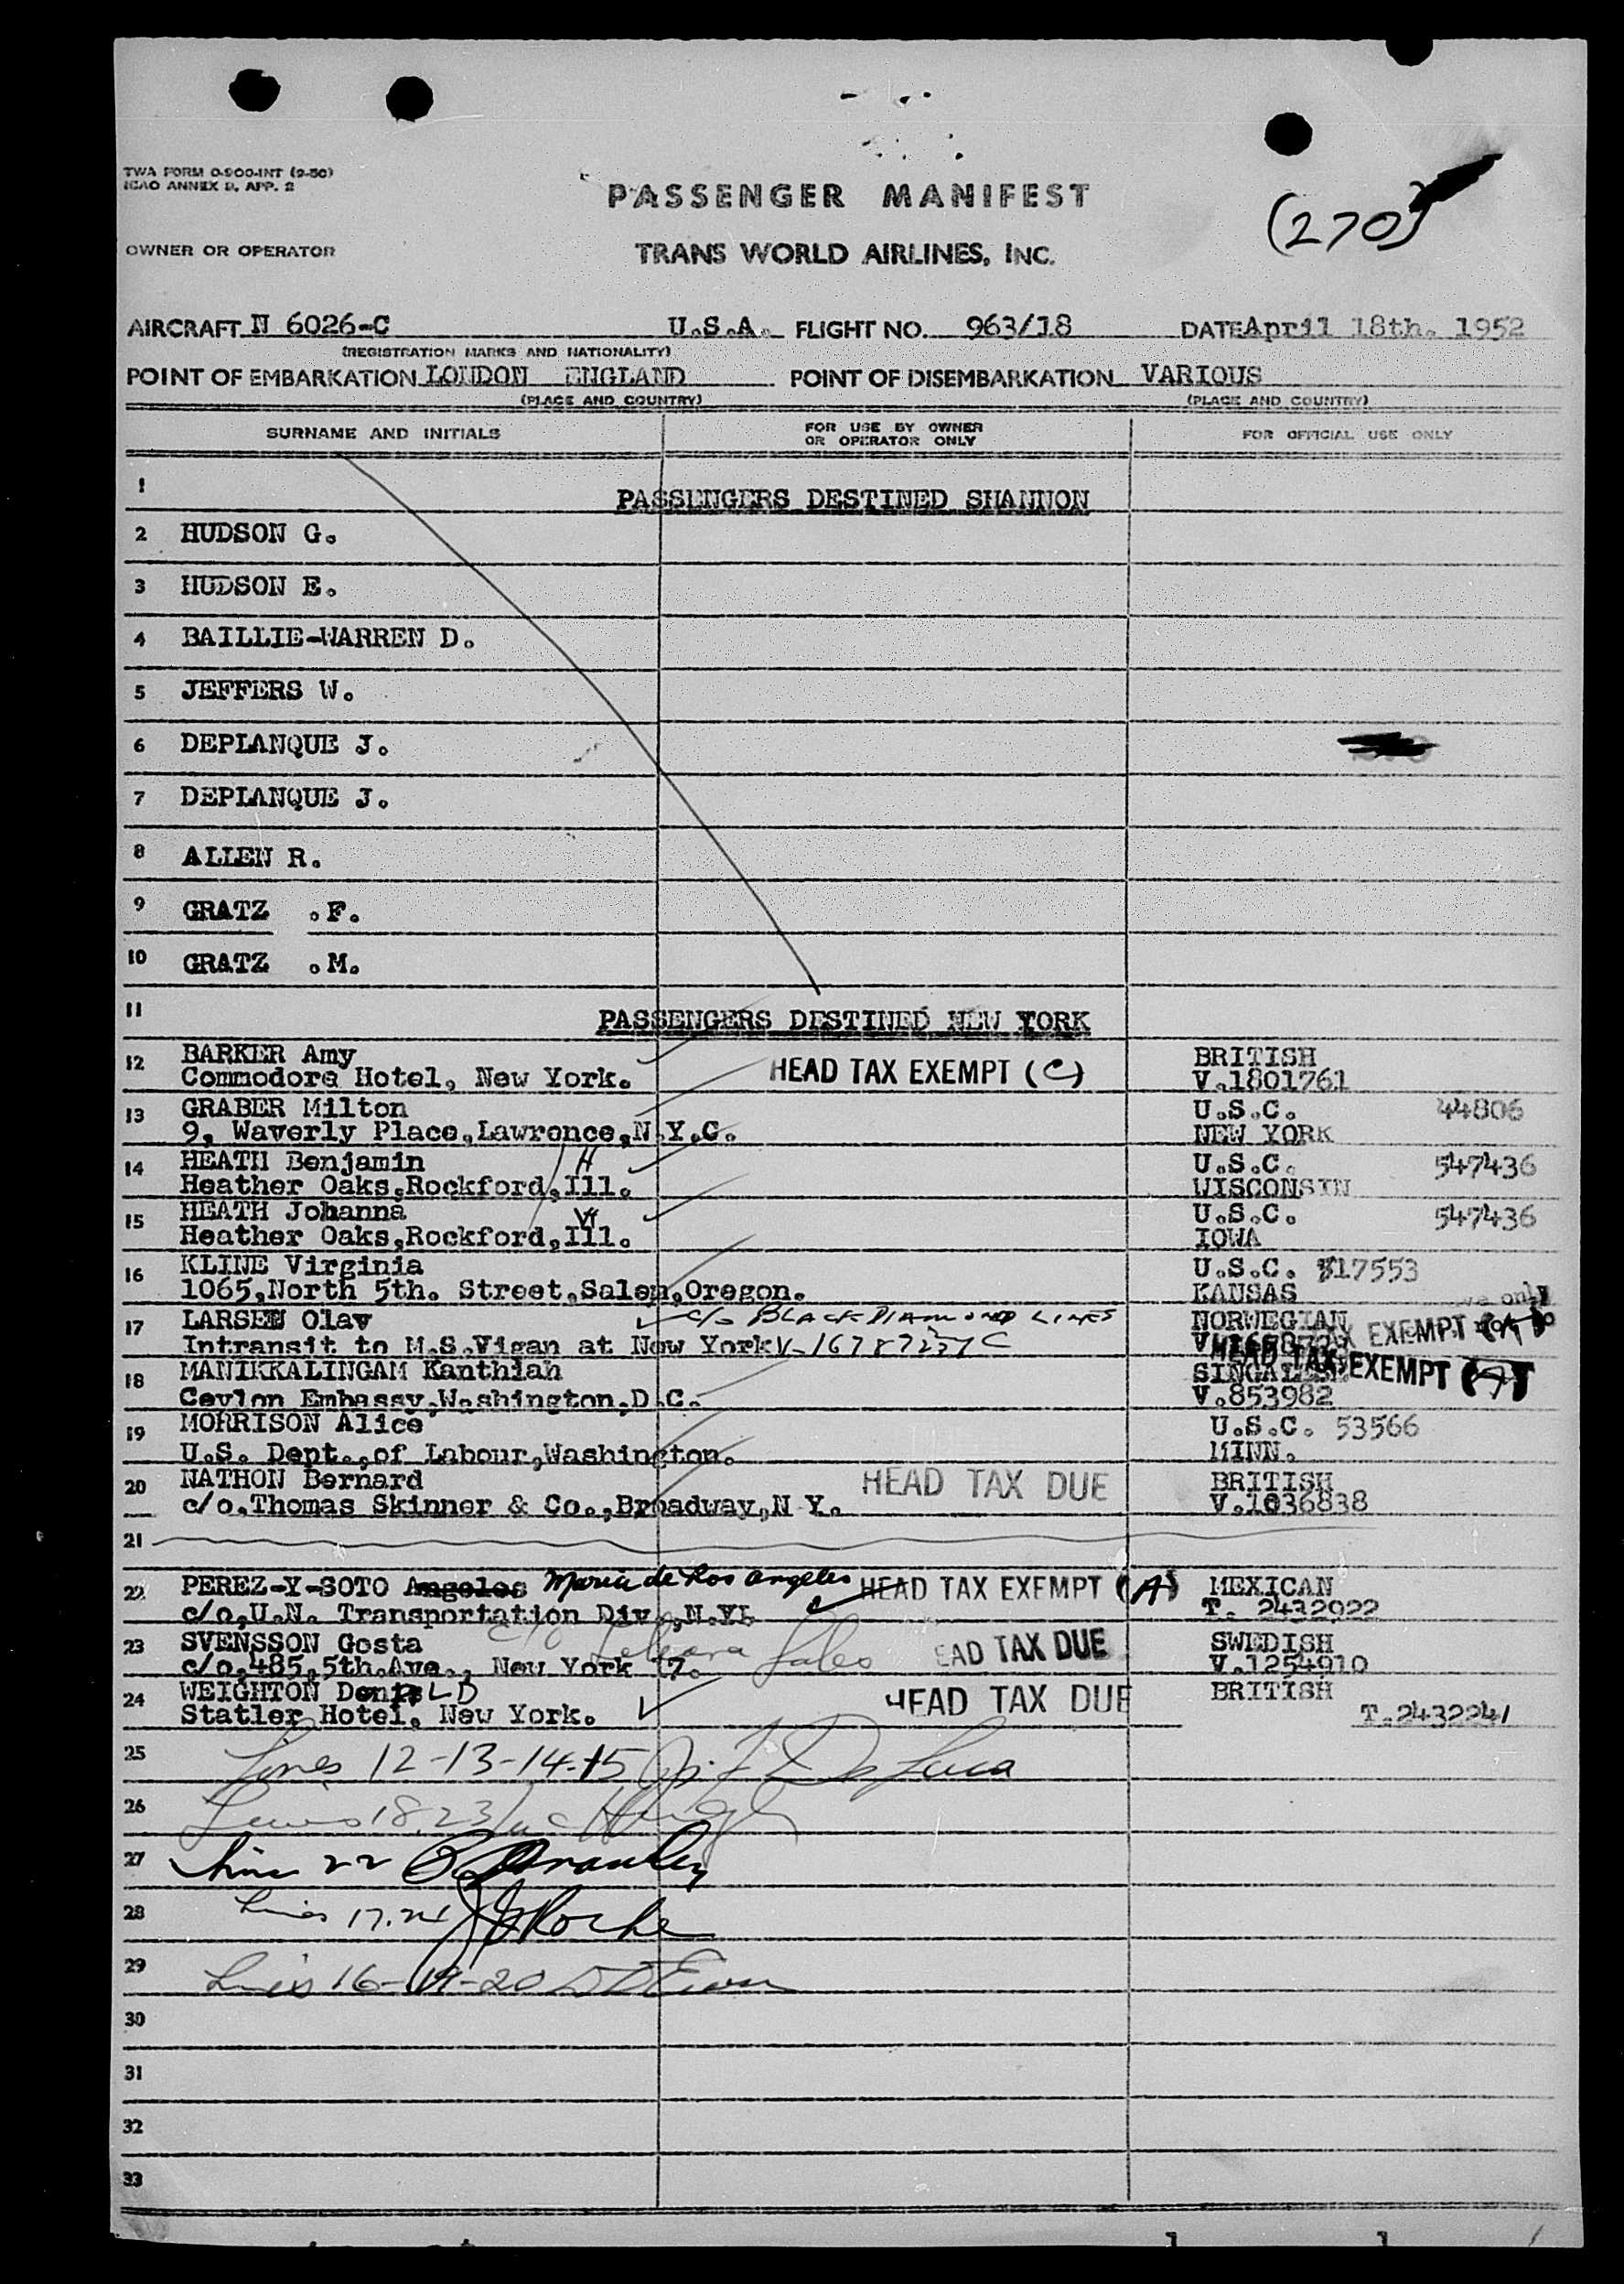 TWA FORM O-900-INT (9-50)
ICAO ANNEX 9, APP. 2
PASSENGER MANIFEST
(270)
OWNER OR OPERATOR
TRANS WORLD AIRLINES, INC.
AIRCRAFT N 6026-C U.S.A. FLIGHT NO. 963/18 DATE April 18th. 1952
(REGISTRATION MARKS AND NATIONALITY)
POINT OF EMBARKATION LONDON ENGLAND POINT OF DISEMBARKATION VARIOUS
(PLACE AND COUNTRY) (PLACE AND COUNTRY)
SURNAME AND INITIALS FOR USE BY OWNER OR OPERATOR ONLY FOR OFFICIAL USE ONLY
1 PASSENGERS DESTINED SHANNON
2 HUDSON G.
3 HUDSON E.
4 BAILLIE-WARREN D.
5 JEFFERS W.
6 DEPLANQUE J.
7 DEPLANQUE J.
8 ALLEN R.
9 GRATZ .F.
10 GRATZ .M.
11 PASSENGERS DESTINED NEW YORK
12 BARKER Amy HEAD TAX EXEMPT (C) BRITISH
Commodore Hotel, New York. V.1801761
13 GRABER Milton U.S.C. 44806
9, Waverly Place,Lawrence,N.Y.C. NEW YORK
14 HEATH Benjamin H U.S.C. 547436
Heather Oaks,Rockford,Ill. WISCONSIN
15 HEATH Johanna U.S.C. 547436
Heather Oaks,Rockford,Ill. IOWA
16 KLINE Virginia U.S.C. 17553
1065,North 5th. Street,Salem,Oregon. KANSAS
17 LARSEN Olav c/o BLACK DIAMOND LINES NORWEGIAN EXEMPT
Intransit to M.S.Vigan at New York
18 MANIKKALINGAM Kanthiah HEAD TAX EXEMPT
Ceylon Embassy,Washington,D.C. V.853982
19 MORRISON Alice U.S.C. 53566
U.S. Dept.,of Labour,Washington. MINN.
20 NATHON Bernard HEAD TAX DUE BRITISH
c/o.Thomas Skinner & Co.,Broadway,N.Y. V.1036838
21
22 PEREZ-Y-SOTO Angeles Maria de Los Angeles HEAD TAX EXEMPT (A) MEXICAN
c/o,U.N. Transportation Div.,N.Y. T. 2432922
23 SVENSSON Gosta c/o Sales EAD TAX DUE SWEDISH
c/o,485,5th.Ave., New York 17. V.1254910
24 WEIGHTON HEAD TAX DUE BRITISH
Statler Hotel, New York. T.2432241
25 Lines 12-13-14-15 De Luca
26 Lines 18.23
27 Line 22
28 Lines 17.24 Roche
29 Lines 16-19-20
30
31
32
33